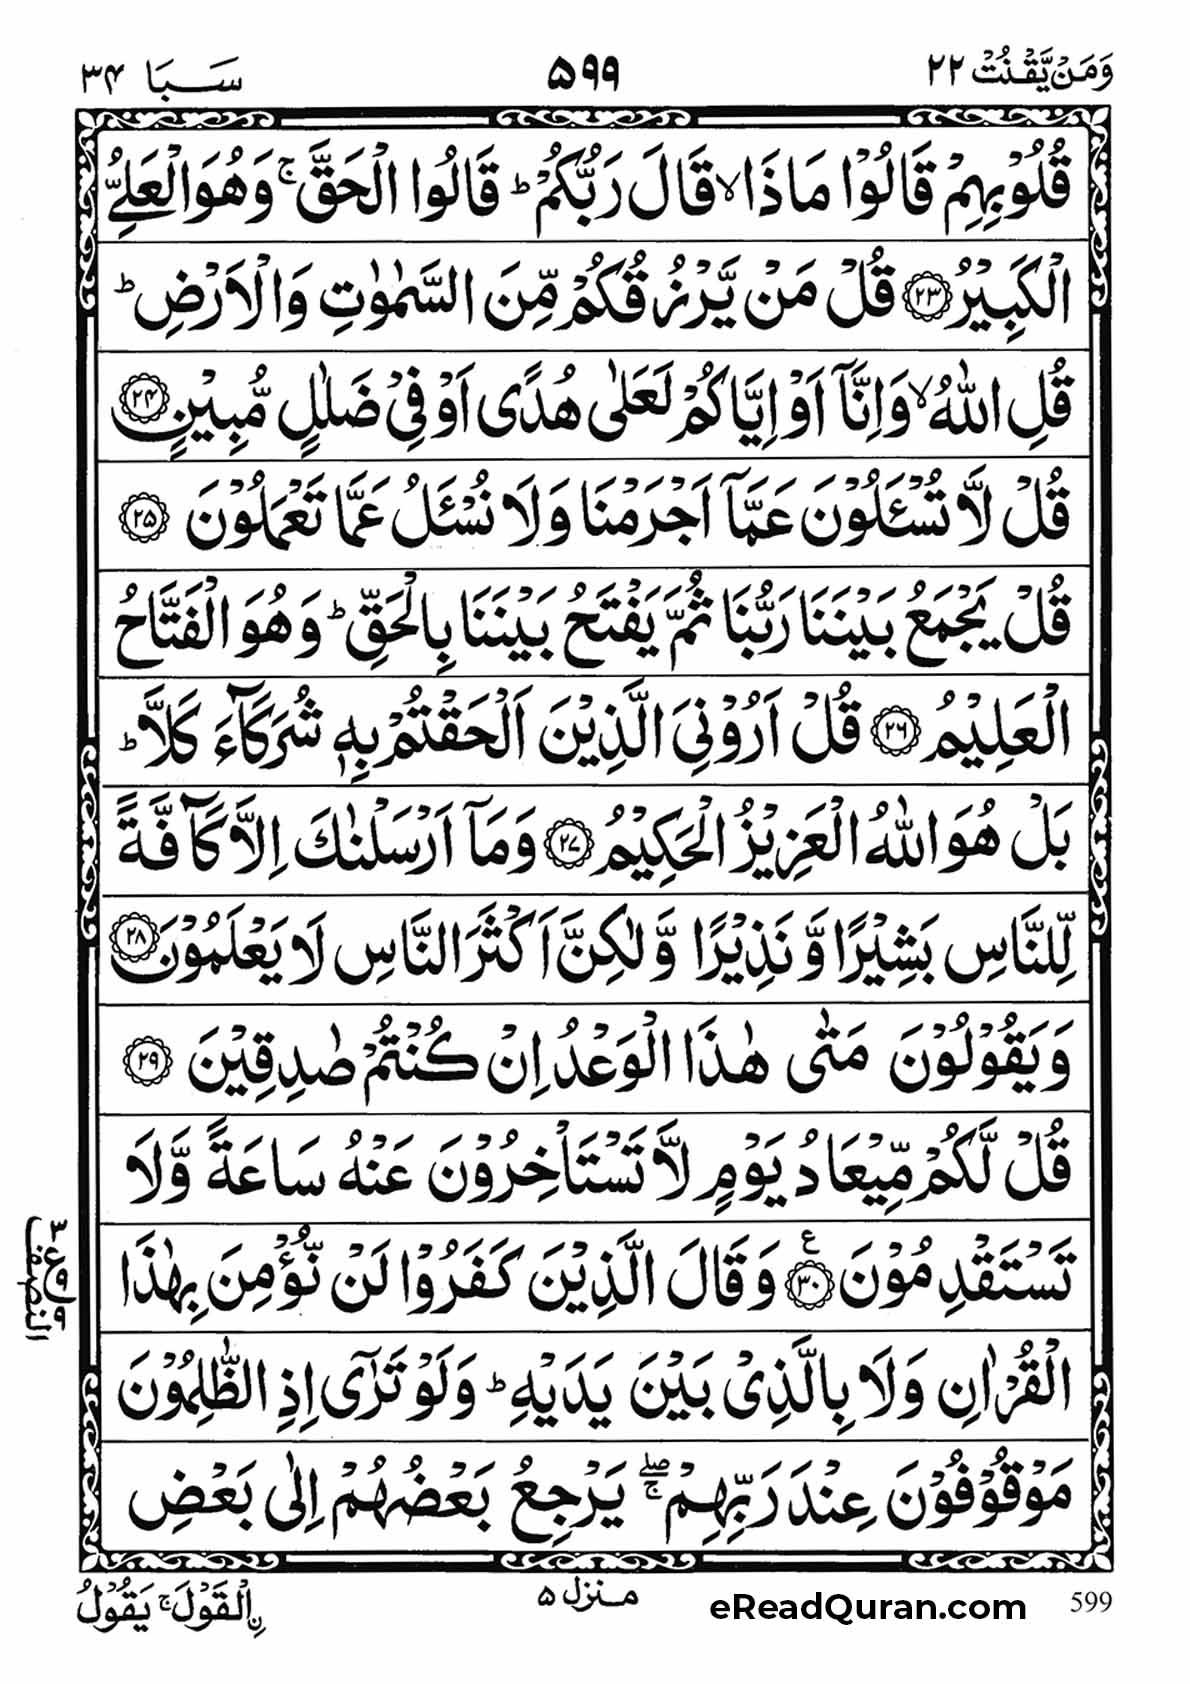 وَمَنْ يَّقْنُتْ ٢٢ ٥٩٩ سَبَا ٣٤
قُلُوْبِهِمْ قَالُوْا مَاذَا ۙ قَالَ رَبُّكُمْ ؕ قَالُوا الْحَقَّ ۚ وَهُوَ الْعَلِيُّ
الْكَبِيْرُ ﴿٢٣﴾ قُلْ مَنْ يَّرْزُقُكُمْ مِّنَ السَّمٰوٰتِ وَالْاَرْضِ ؕ
قُلِ اللّٰهُ ۙ وَاِنَّاۤ اَوْ اِيَّاكُمْ لَعَلٰى هُدًى اَوْ فِيْ ضَلٰلٍ مُّبِيْنٍ ﴿٢٤﴾
قُلْ لَّا تُسْـَٔلُوْنَ عَمَّاۤ اَجْرَمْنَا وَلَا نُسْـَٔلُ عَمَّا تَعْمَلُوْنَ ﴿٢٥﴾
قُلْ يَجْمَعُ بَيْنَنَا رَبُّنَا ثُمَّ يَفْتَحُ بَيْنَنَا بِالْحَقِّ ؕ وَهُوَ الْفَتَّاحُ
الْعَلِيْمُ ﴿٢٦﴾ قُلْ اَرُوْنِيَ الَّذِيْنَ اَلْحَقْتُمْ بِهٖ شُرَكَآءَ كَلَّا ؕ
بَلْ هُوَ اللّٰهُ الْعَزِيْزُ الْحَكِيْمُ ﴿٢٧﴾ وَمَاۤ اَرْسَلْنٰكَ اِلَّا كَآفَّةً
لِّلنَّاسِ بَشِيْرًا وَّنَذِيْرًا وَّلٰكِنَّ اَكْثَرَ النَّاسِ لَا يَعْلَمُوْنَ ﴿٢٨﴾
وَيَقُوْلُوْنَ مَتٰى هٰذَا الْوَعْدُ اِنْ كُنْتُمْ صٰدِقِيْنَ ﴿٢٩﴾
قُلْ لَّكُمْ مِّيْعَادُ يَوْمٍ لَّا تَسْتَاْخِرُوْنَ عَنْهُ سَاعَةً وَّلَا
تَسْتَقْدِمُوْنَ ﴿٣٠﴾ ع وَقَالَ الَّذِيْنَ كَفَرُوْا لَنْ نُّؤْمِنَ بِهٰذَا
الْقُرْاٰنِ وَلَا بِالَّذِيْ بَيْنَ يَدَيْهِ ؕ وَلَوْ تَرٰٓى اِذِ الظّٰلِمُوْنَ
مَوْقُوْفُوْنَ عِنْدَ رَبِّهِمْ ۖۚ يَرْجِعُ بَعْضُهُمْ اِلٰى بَعْضِ
النصف
599 eReadQuran.com منزل ٥ نِ الْقَوْلَ ۚ يَقُوْلُ